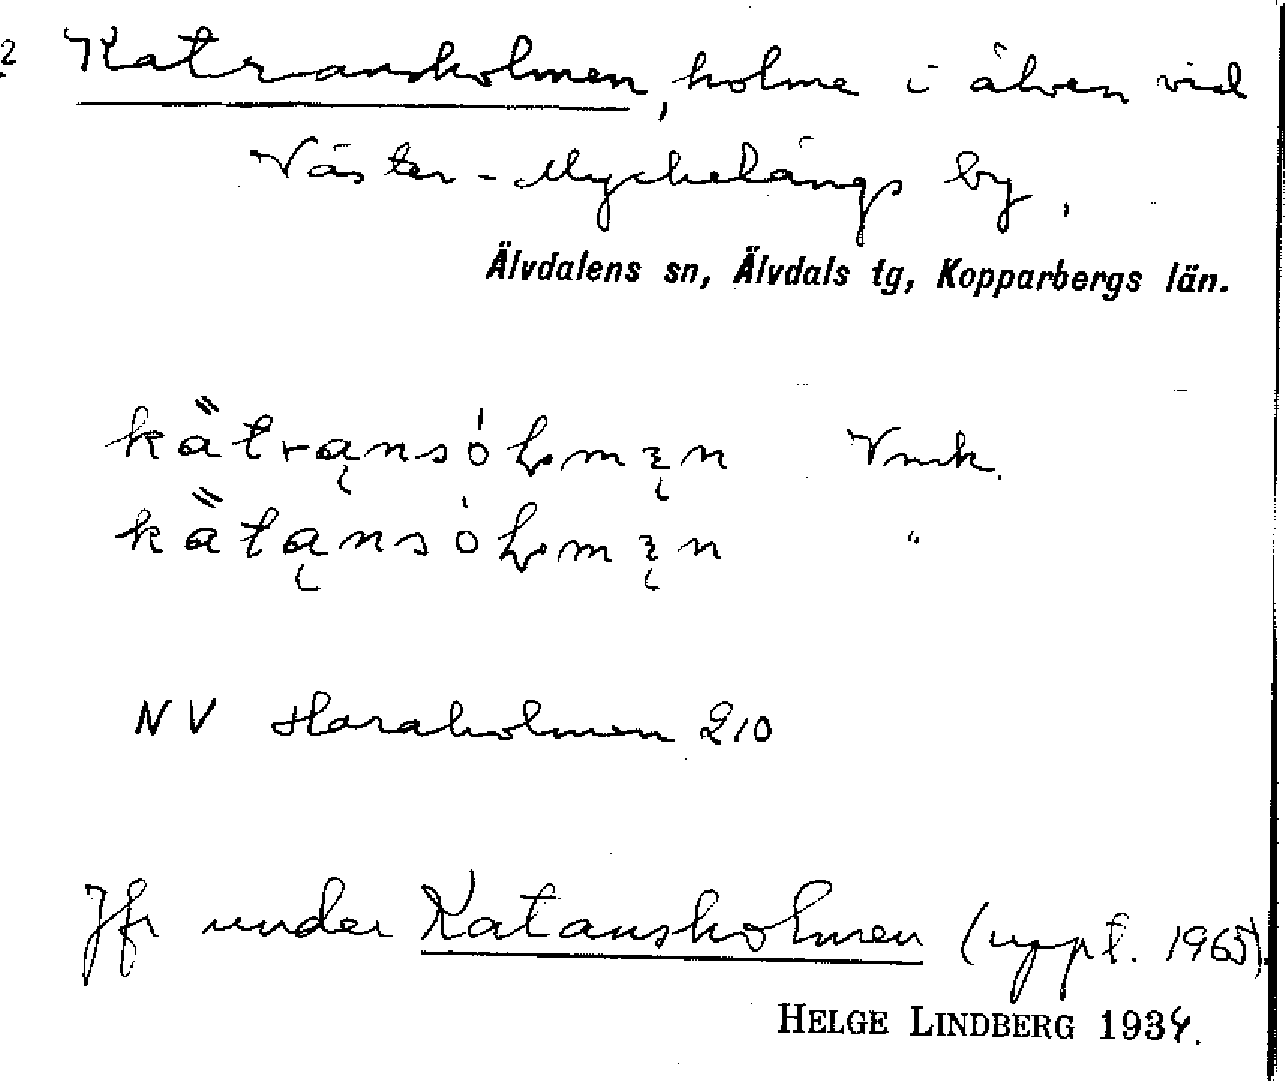 2 Katransholmen, holme i älven vid
Väster-Myckelängs by.
Älvdalens sn, Älvdals tg, Kopparbergs län.
Vmk.
"
NV Haraholmen 210
Jfr under Katansholmen (uppt. 1965).
HELGE LINDBERG 1934.